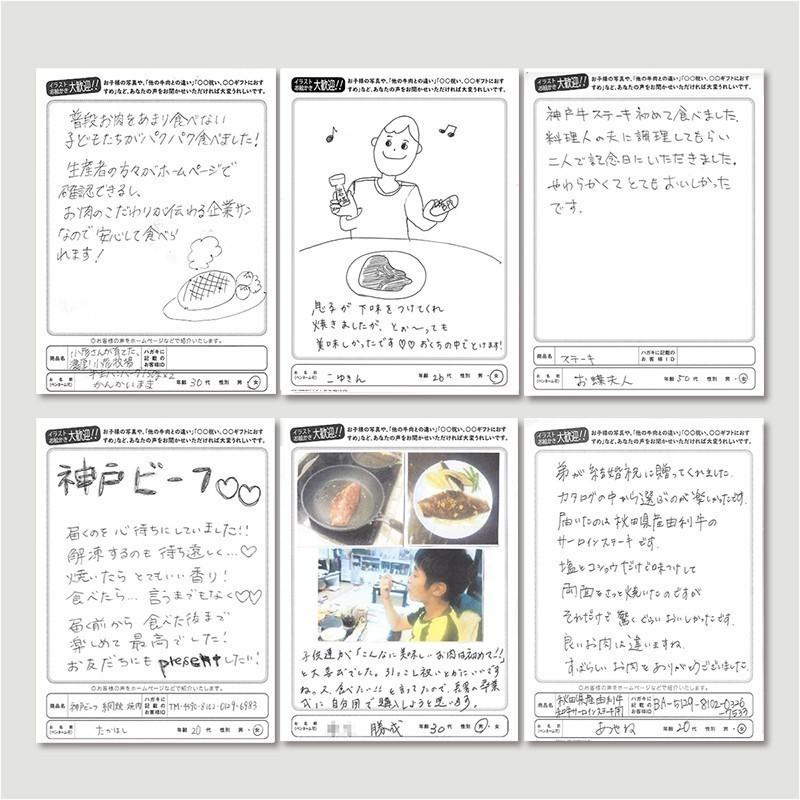 イラスト お絵かき 大歓迎!! お子様の写真や、「他の牛肉との違い」「○○祝い、○○ギフトにおす
すめ」など、あなたの声をお聞かせいただければ大変うれしいです。
普段お肉をあまり食べない
子どもたちがパクパク食べました!
生産者の方々がホームページで
確認できるし、
お肉のこだわりが伝わる企業サン
なので安心して食べら
れます!
◎お客様の声をホームページなどで紹介いたします。
商品名 小形さんが育てた、
ハガキに記載のお客様ID
お名前(ペンネーム可) かんかいまき 年齢 30代 性別 男・女
イラスト お絵かき 大歓迎!! お子様の写真や、「他の牛肉との違い」「○○祝い、○○ギフトにおす
すめ」など、あなたの声をお聞かせいただければ大変うれしいです。
息子が下味をつけてくれ
焼きましたが、とぉ〜っても
美味しかったです♡♡おくちの中でとけます!
お名前(ペンネーム可) こゆきん 年齢 26代 性別 男・女
イラスト お絵かき 大歓迎!! お子様の写真や、「他の牛肉との違い」「○○祝い、○○ギフトにおす
すめ」など、あなたの声をお聞かせいただければ大変うれしいです。
神戸牛ステーキ初めて食べました。
料理人の夫に調理してもらい
二人で記念日にいただきました。
やわらかくてとてもおいしかった
です。
商品名 ステーキ ハガキに記載のお客様ID
お名前(ペンネーム可) お蝶夫人 年齢 50代 性別 男・女
イラスト お絵かき 大歓迎!! お子様の写真や、「他の牛肉との違い」「○○祝い、○○ギフトにおす
すめ」など、あなたの声をお聞かせいただければ大変うれしいです。
神戸ビーフ♡♡
届くのを心待ちにしていました!!
解凍するのも待ち遠しく...♡
焼いたらとてもいい香り!
食べたら...言うまでもなく♡♡
届く前から食べた後まで
楽しめて最高でした!
お友だちにもpresentしたい!
◎お客様の声をホームページなどで紹介いたします。
商品名 神戸ビーフ 網焼 焼肉 ハガキに記載のお客様ID
お名前(ペンネーム可) たかはし 年齢 20代 性別 男・女
イラスト お絵かき 大歓迎!! お子様の写真や、「他の牛肉との違い」「○○祝い、○○ギフトにおす
すめ」など、あなたの声をお聞かせいただければ大変うれしいです。
子供達が「こんなに美味しいお肉は初めて!!」
と大喜びでした。引っこし祝いとかにいいです
ねっ。又、食べたい!!と言ってたので、長男の卒業
式に自分用で購入しようと思います。
お名前(ペンネーム可) 勝成 年齢 30代 性別 男・女
イラスト お絵かき 大歓迎!! お子様の写真や、「他の牛肉との違い」「○○祝い、○○ギフトにおす
すめ」など、あなたの声をお聞かせいただければ大変うれしいです。
弟が結婚祝に贈ってくれました。
カタログの中から選ぶのが楽しかったです。
届いたのは秋田県産由利牛の
サーロインステーキです。
塩とコショウだけで味つけして
両面をさっと焼いたのですが
それだけで驚くぐらいおいしかったです。
良いお肉は違いますね。
すばらしいお肉をありがとうございました。
◎お客様の声をホームページなどで紹介いたします。
商品名 秋田県産由利牛
和牛サーロインステーキ用
ハガキに記載のお客様ID BA-5129-8102-0326
-7533
お名前(ペンネーム可) あつね 年齢 20代 性別 男・女